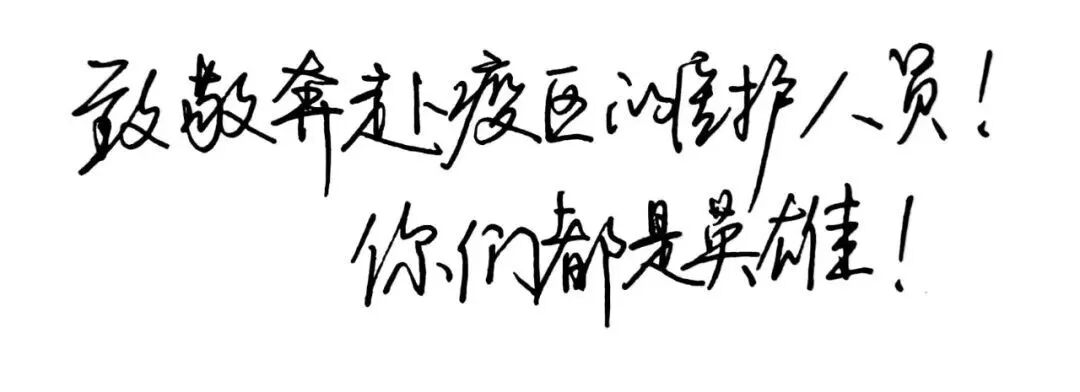 致敬奔赴疫区的医护人员!
你们都是英雄!